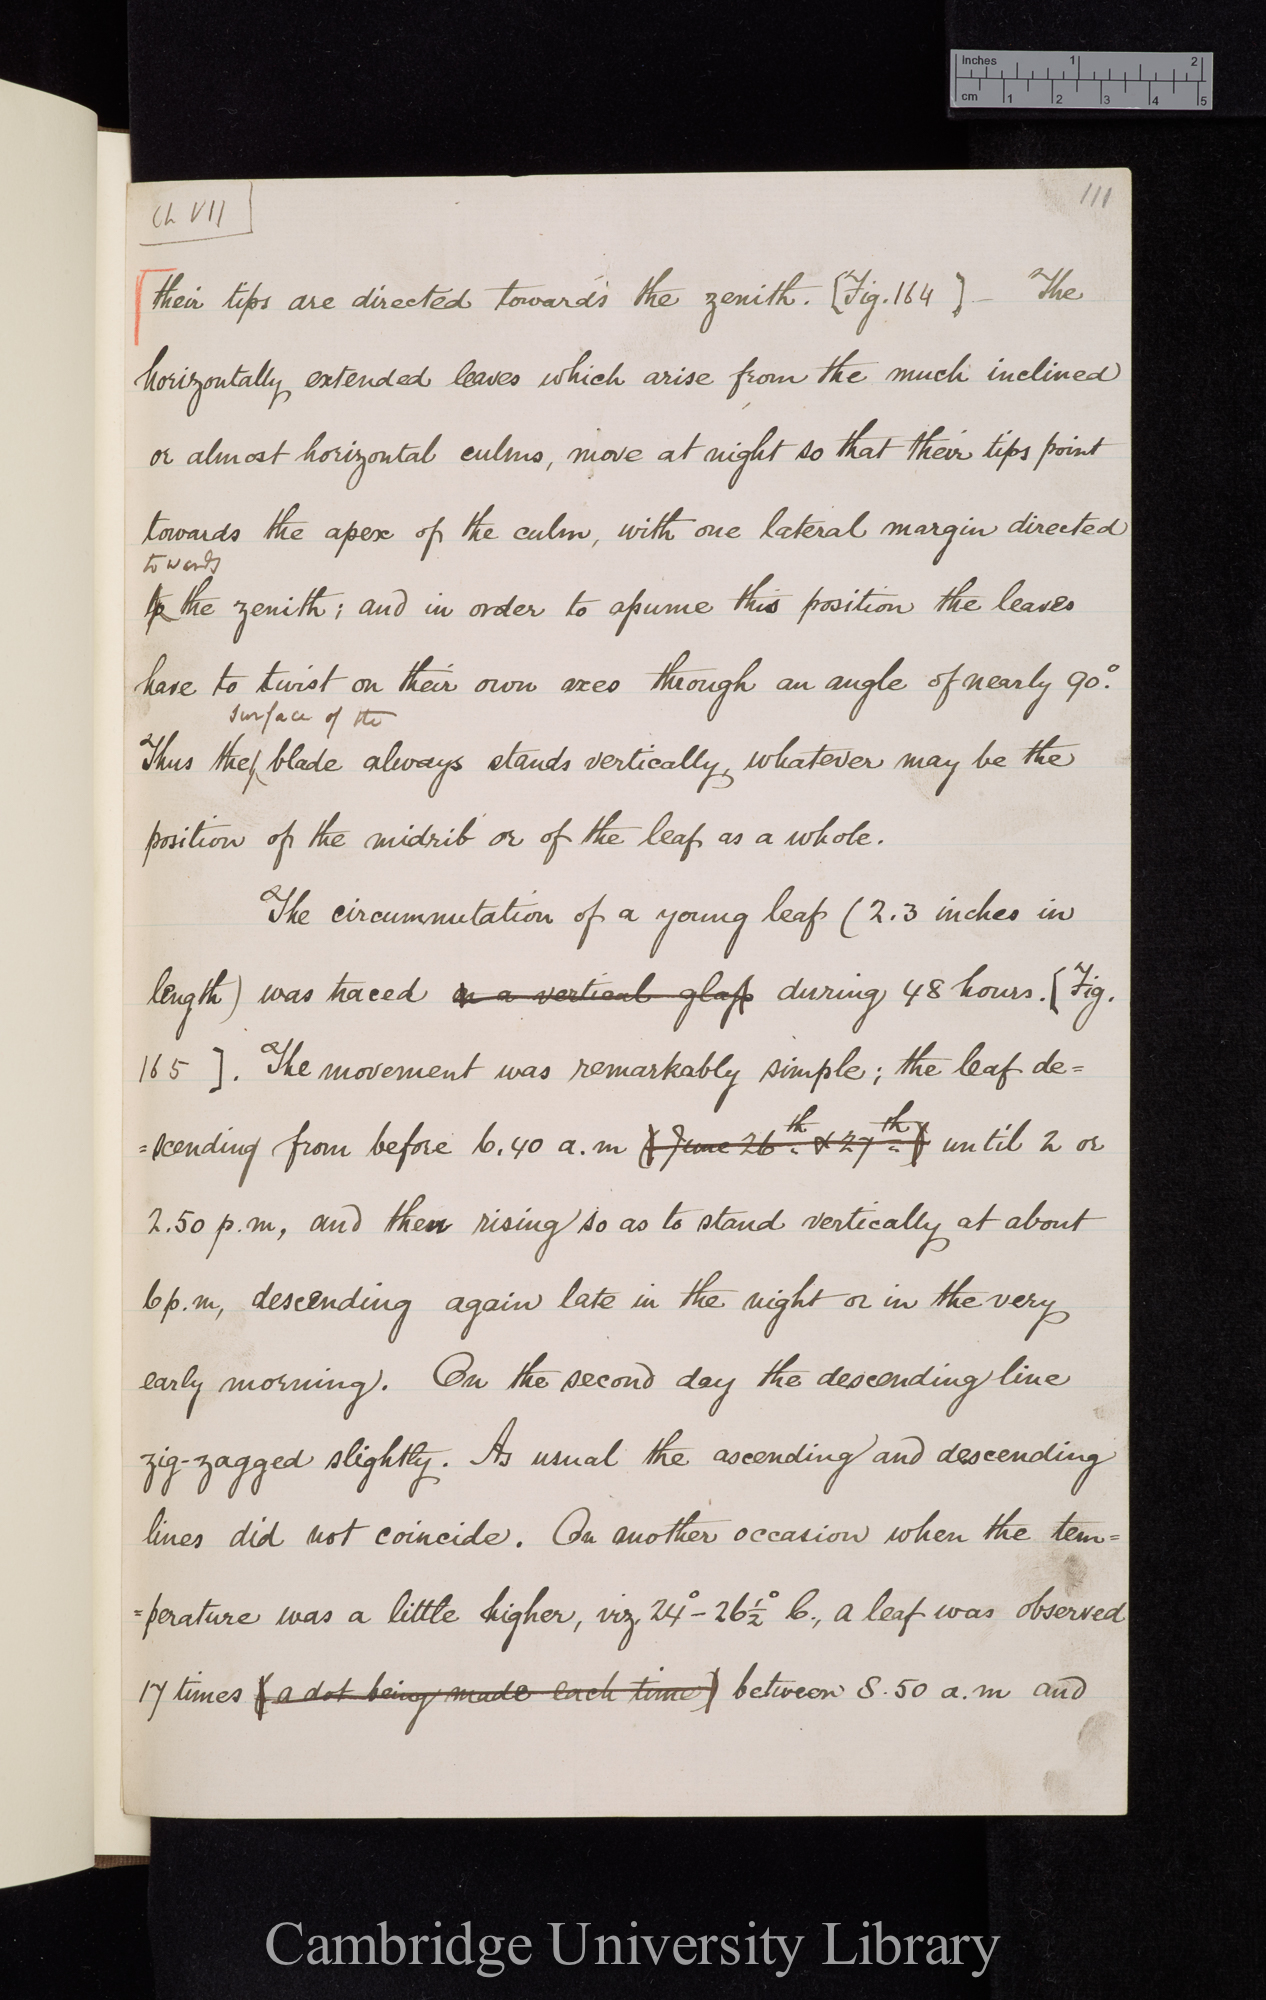 Inches 1 2
cm 1 2 3 4 5
Ch VII
111
their tips are directed towards the zenith. [Fig. 164] – The
horizontally extended leaves which arise from the much inclined
or almost horizontal culms, move at night so that their tips point
towards the apex of the culm, with one lateral margin directed
towards
to the zenith; and in order to assume this position the leaves
have to twist on their own axes through an angle of nearly 90°.
surface of the
Thus the blade always stands vertically, whatever may be the
position of the midrib or of the leaf as a whole.
The circumnutation of a young leaf (2.3 inches in
length) was traced on a vertical glass during 48 hours. [Fig.
165]. The movement was remarkably simple; the leaf de=
=scending from before 6.40 a.m (June 26th & 27th) until 2 or
2.50 p.m, and then rising so as to stand vertically at about
6 p.m, descending again late in the night or in the very
early morning. On the second day the descending line
zig-zagged slightly. As usual the ascending and descending
lines did not coincide. On another occasion when the tem=
=perature was a little higher, viz 24°-26½° C., a leaf was observed
17 times (a dot being made each time) between 8.50 a.m and
Cambridge University Library